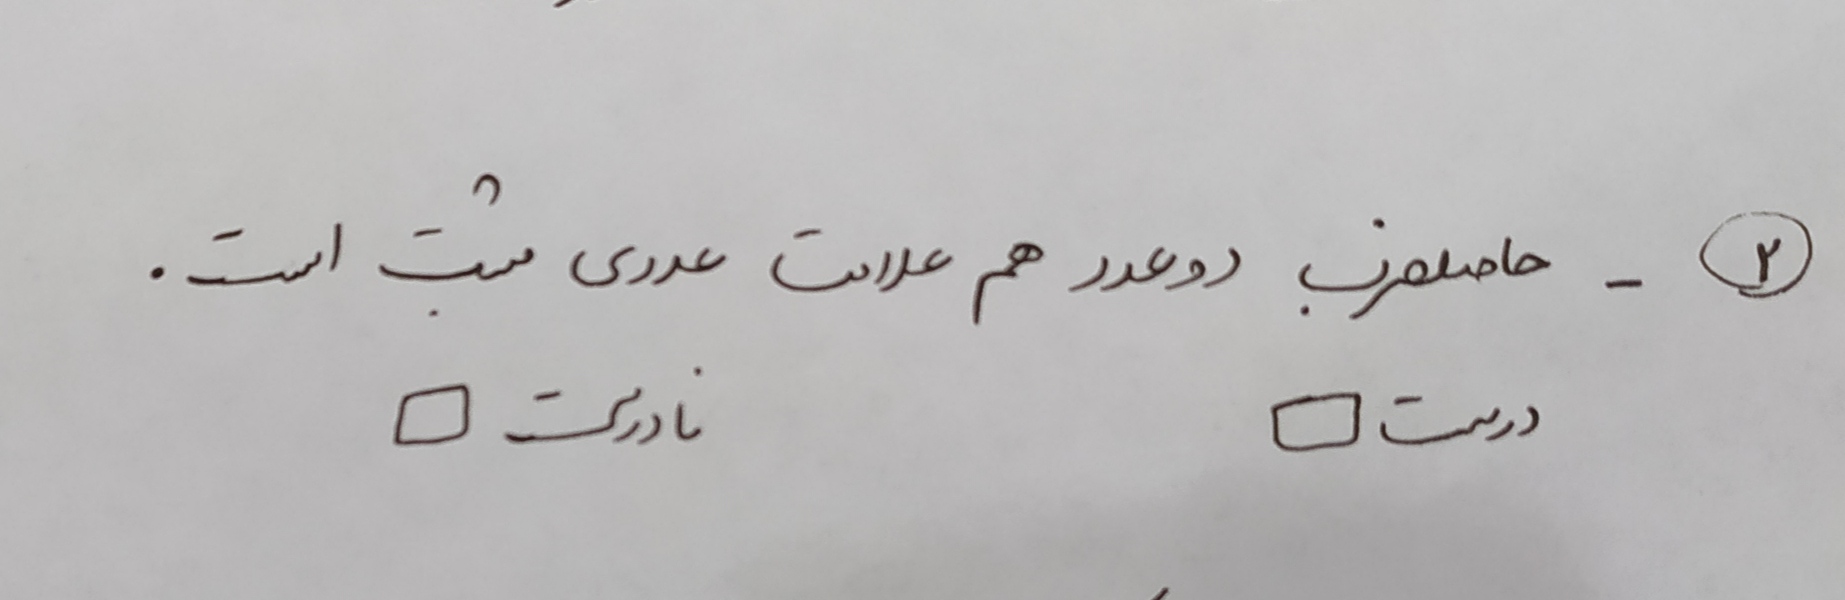 ۲ - حاصلضرب دو عدد هم علامت عددی مثبت است.
درست □ نادرست □